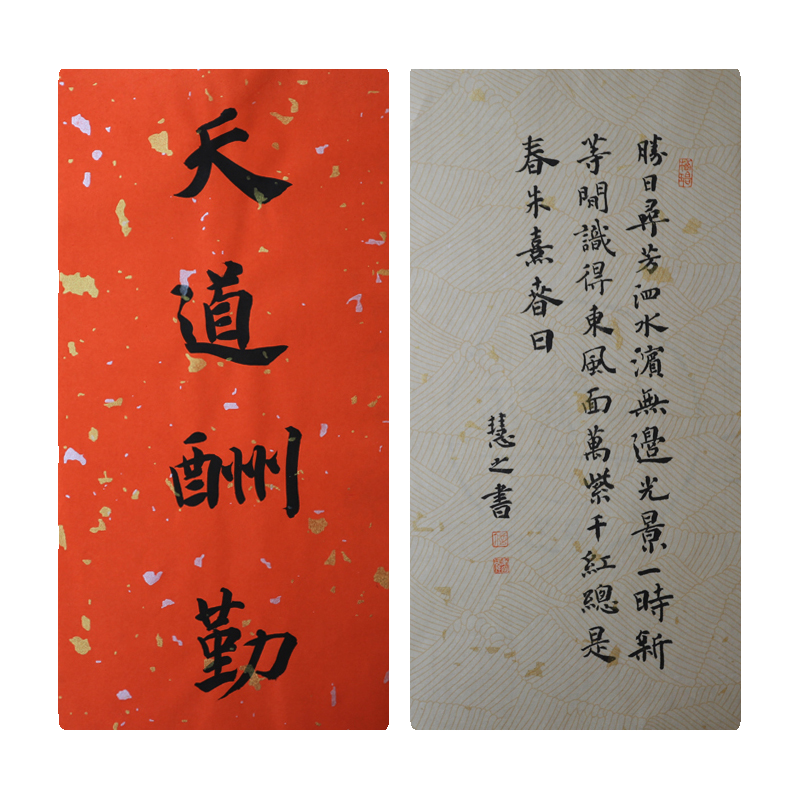 天道酬勤
勝日尋芳泗水濱無邊光景一時新
等閒識得東風面萬紫千紅總是
春朱熹春日
慧之書